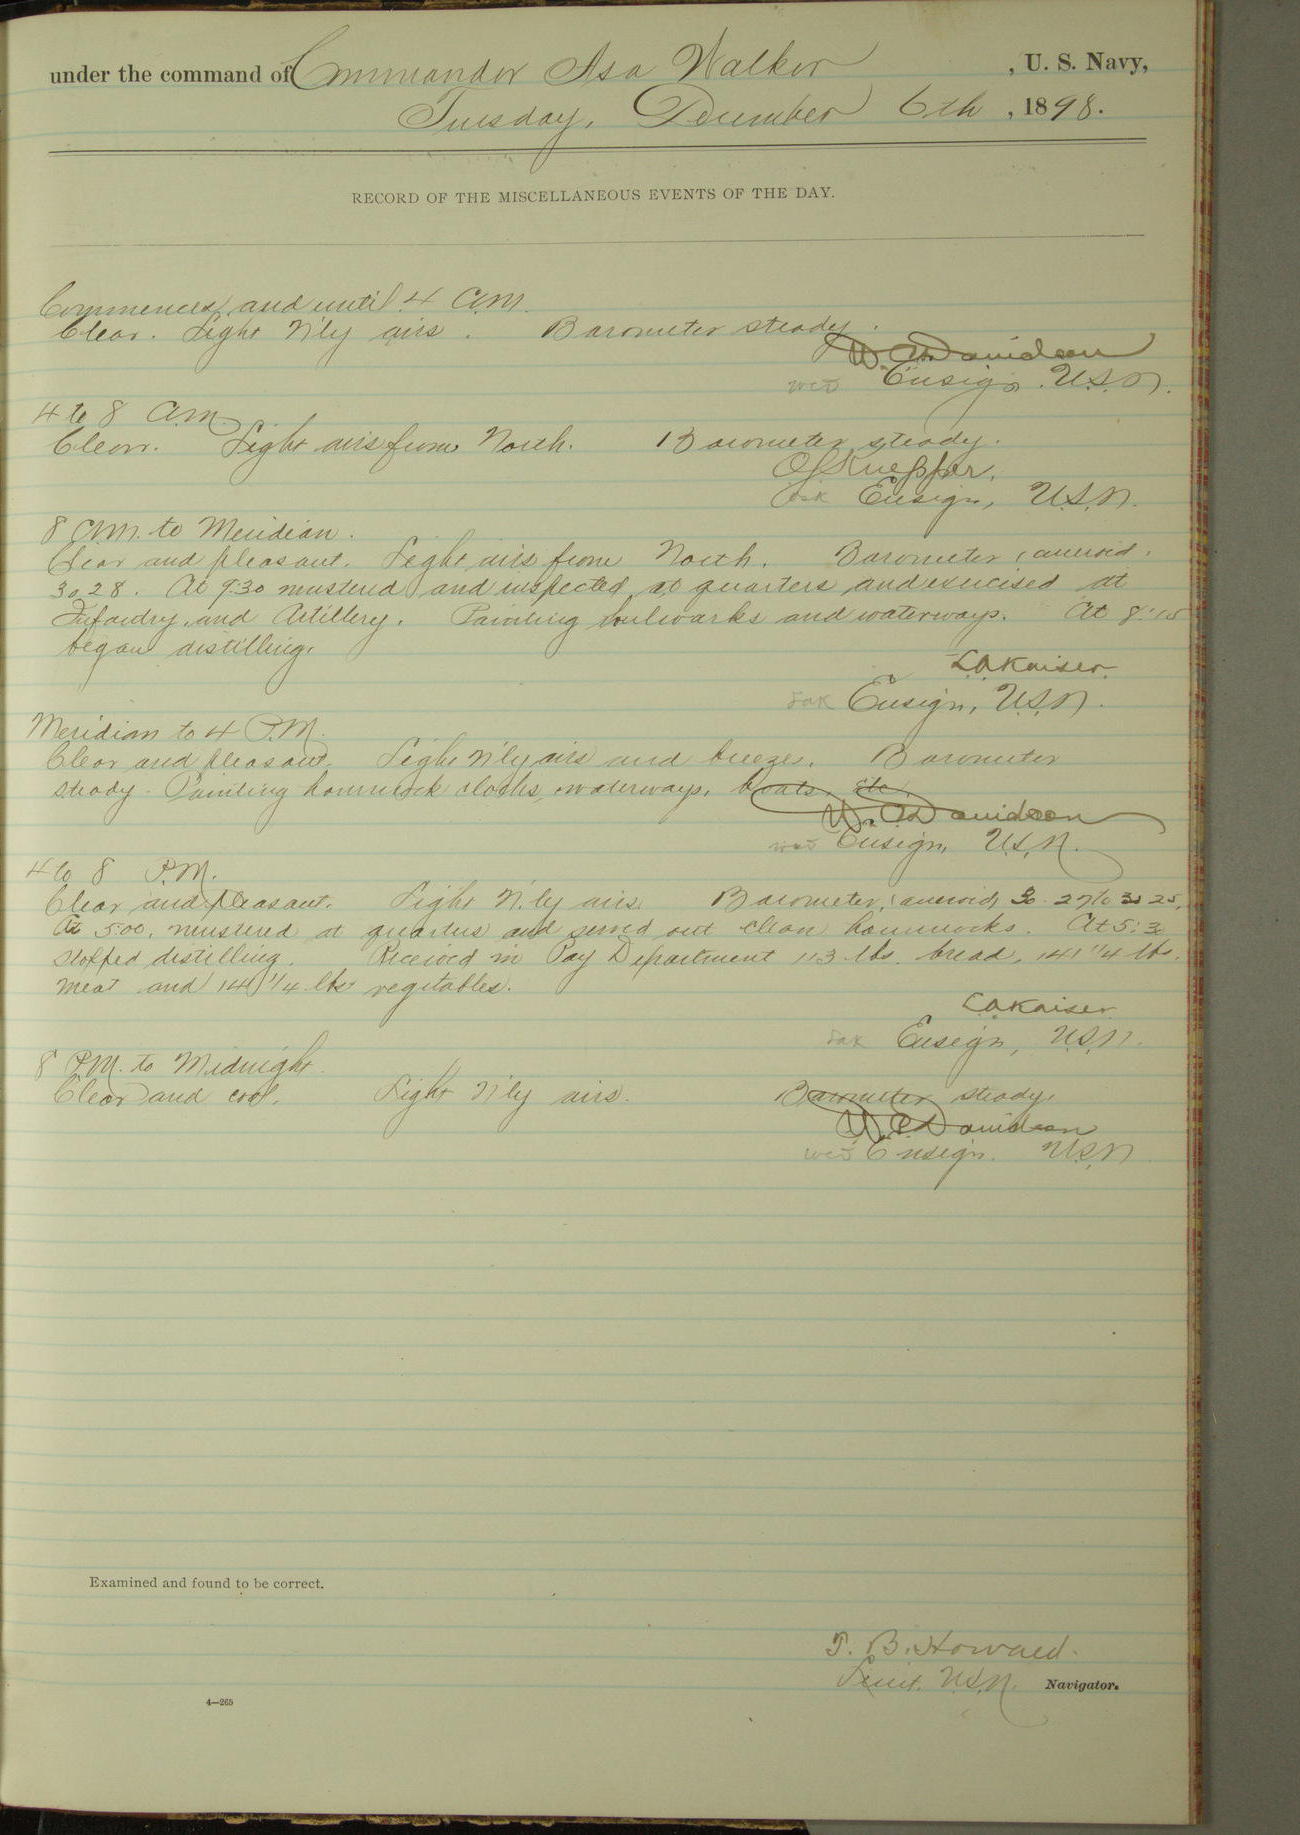 under the command of Commander Asa Walker, U. S. Navy,
Tuesday, December 6th, 1898.
RECORD OF THE MISCELLANEOUS EVENTS OF THE DAY.
Commences and until 4 A.M.
Clear. Light N'ly airs. Barometer steady.
W. C. Davidson
WCD Ensign, U.S.N.
4 to 8 A.M.
Clear. Light airs from North. Barometer steady.
Ensign, U.S.N.
8 A.M. to Meridian.
Clear and pleasant. Light airs from North. Barometer, aneroid,
30.28. At 9:30 mustered and inspected at quarters and exercised at
Infantry and Artillery. Painting bulwarks and waterways. At 8:15
began distilling.
L.A. Kaiser
LAK Ensign, U.S.N.
Meridian to 4 P.M.
Clear and pleasant. Light N'ly airs and breezes. Barometer
steady. Painting hammock cloths, waterways, boats, etc.
W. C. Davidson
WCD Ensign, U.S.N.
4 to 8 P.M.
Clear and pleasant. Light N'ly airs. Barometer, (aneroid) 30.27 to 30.25.
At 5:00, mustered at quarters and served out clean hammocks. At 5:3
stopped distilling. Received in Pay Department 113 lbs. bread, 141 1/4 lbs.
meat and 141 1/4 lbs vegetables.
L.A. Kaiser
LAK Ensign, U.S.N.
8 P.M. to Midnight.
Clear and cool. Light N'ly airs. Barometer steady.
W. C. Davidson
WCD Ensign. U.S.N
Examined and found to be correct.
T. B. Howard.
Lieut. U.S.N. Navigator.
4—265